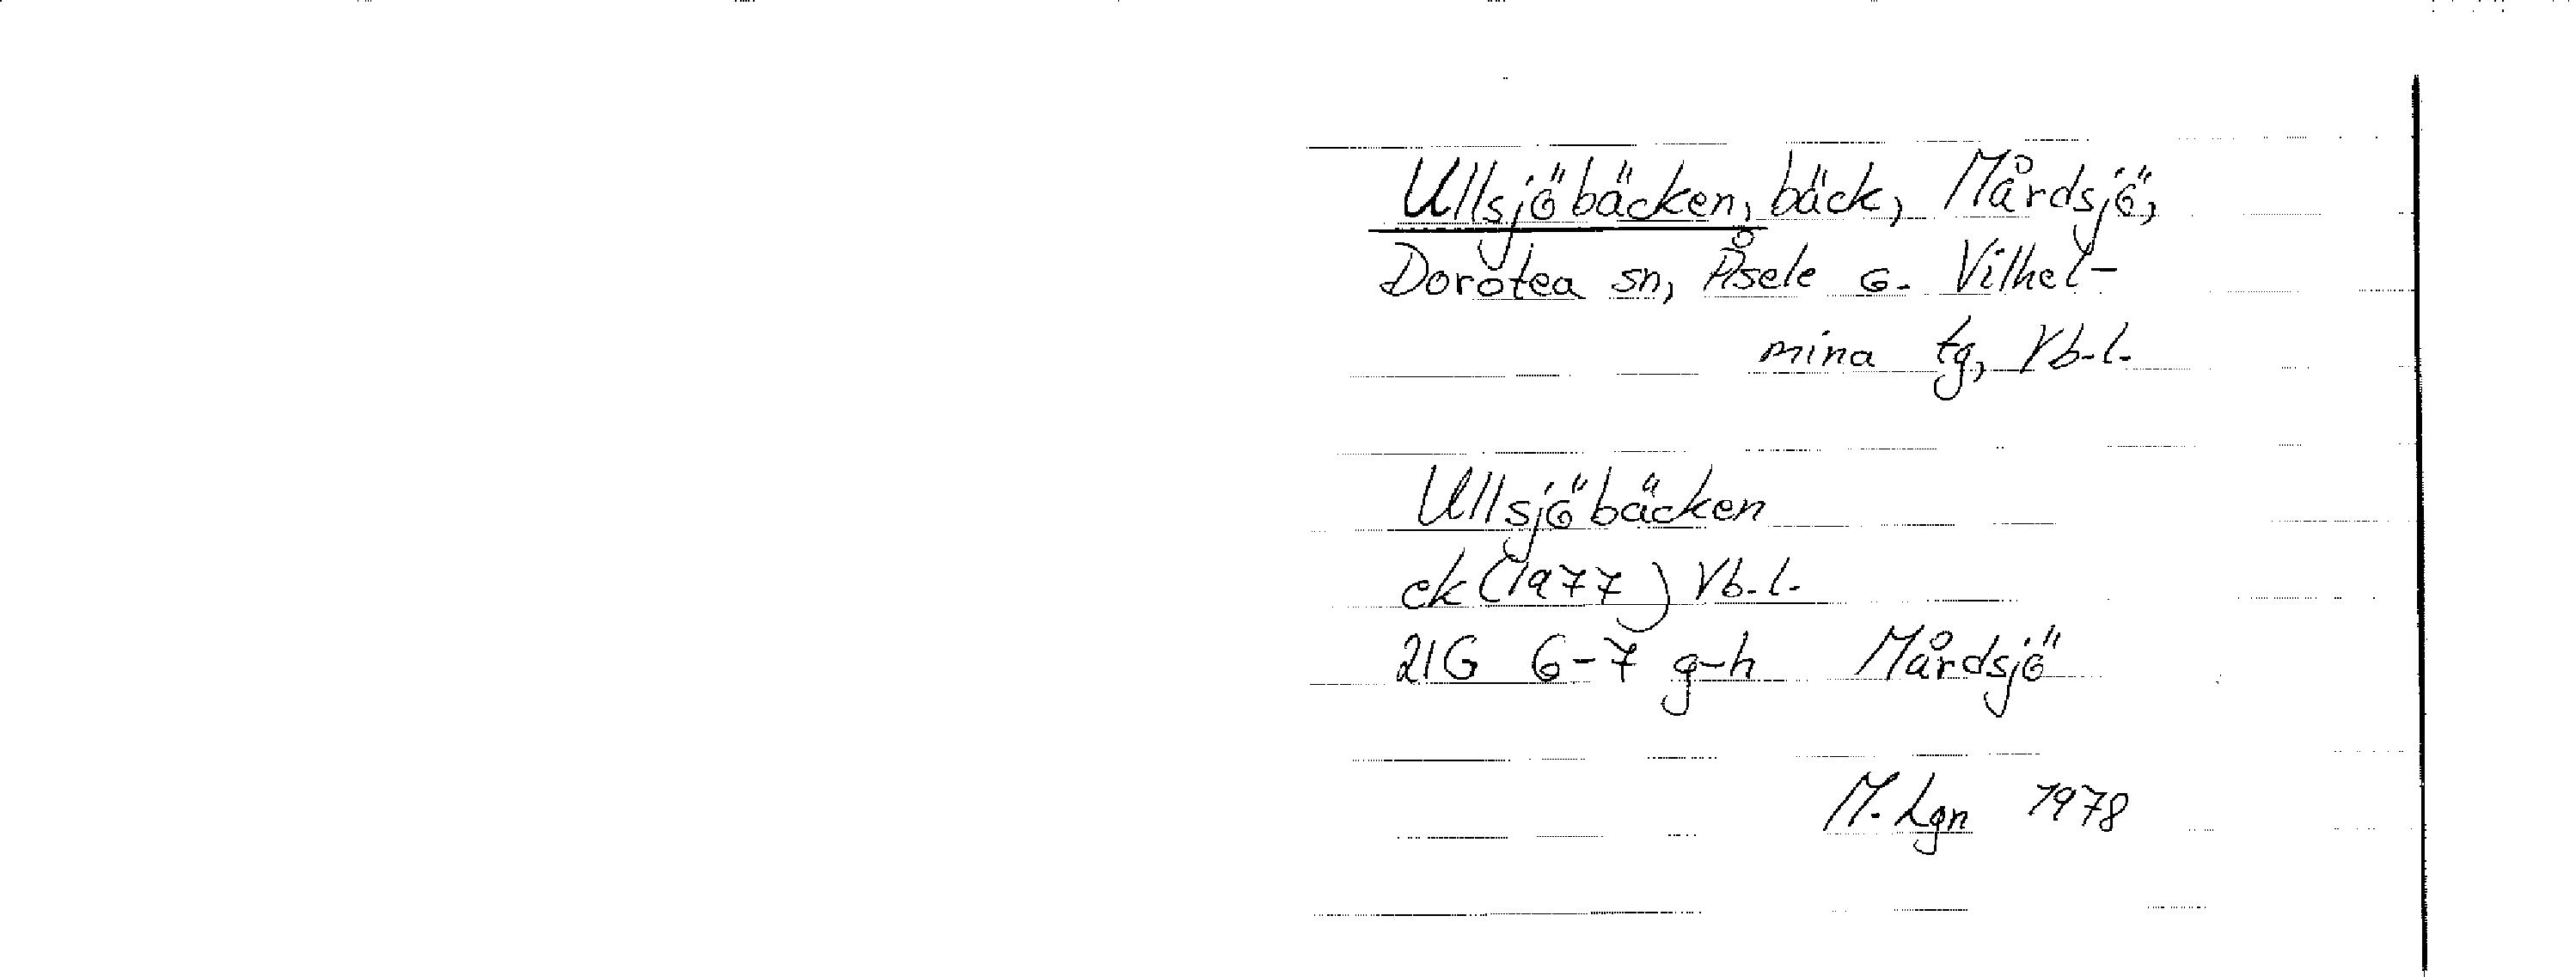 Ullsjöbäcken, bäck, Mårdsjö,
Dorotea sn, Åsele o. Vilhel-
mina tg, Vb. l.
Ullsjöbäcken
ek (1977) Vb. l.
21G 6-7 g-h Mårdsjö
M. Lgn 1978